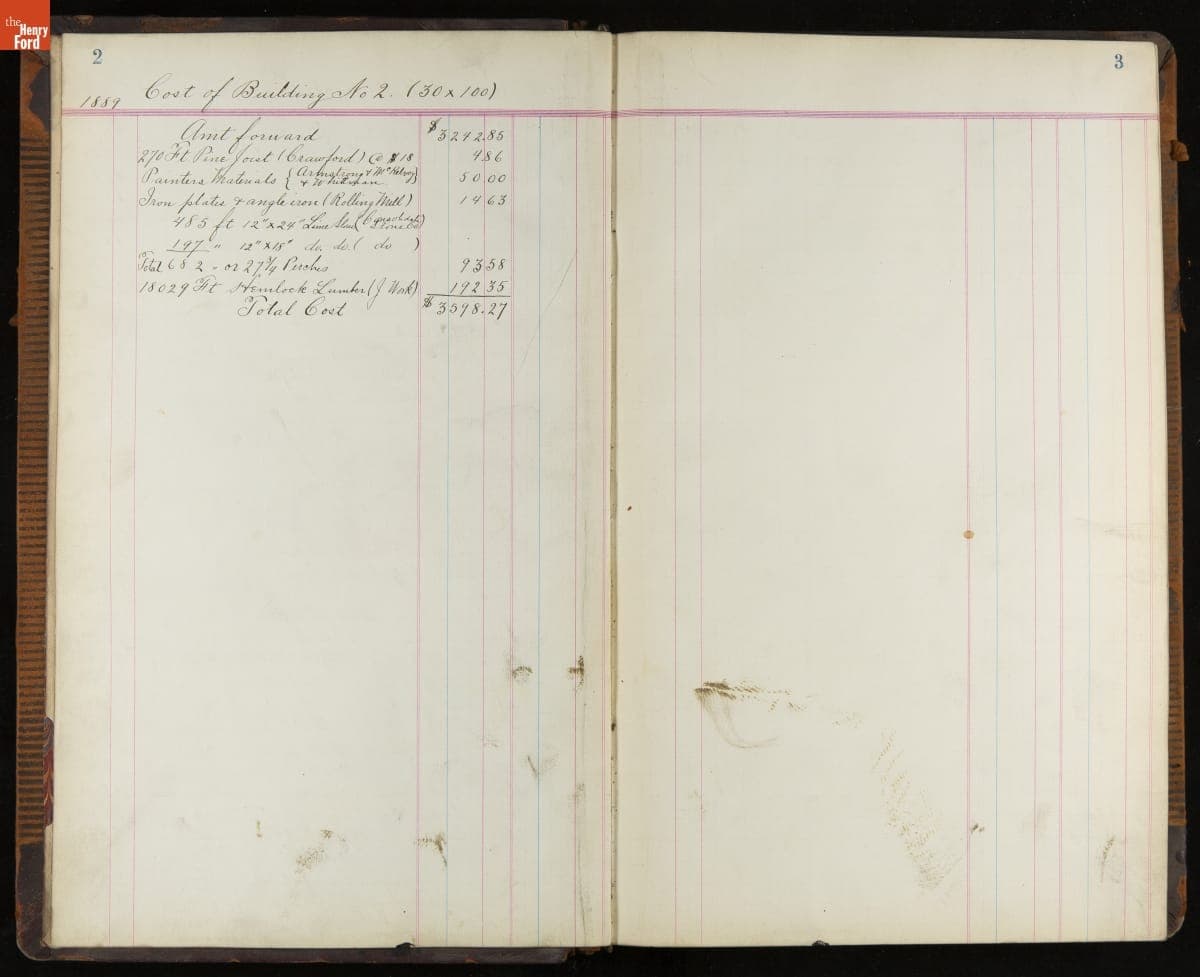 the
Henry
Ford
2
3
1889 Cost of Building No 2. (30 x 100)
Amt forward $3242.85
270 Ft Pine Joist (Crawford) @ $18 4 86
Painters Materials { Armstrong & McKelvy } 50 00
& Whitman
Iron plates & angle iron (Rolling Mill) 14 63
485 ft 12" x 24" Lime Stone (Consolidated Stone Co)
197 " 12" x 18" do. do. ( do )
Total 682 " or 27 3/4 Perches 93 58
18029 Ft Hemlock Lumber (J Work) 192 35
Total Cost $3598.27